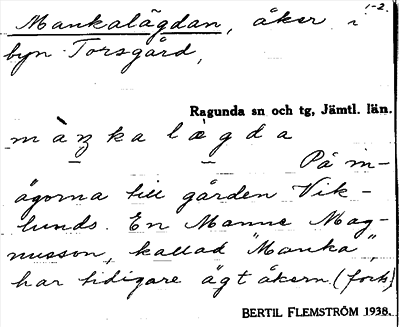 1-2.
Mankalägdan, åker i
byn Torsgård,
Ragunda sn och tg, Jämtl. län.
màŋkalægda
På in-
ägorna till gården Vik-
lunds. En Manne Mag-
nusson, kallad "Manka",
har tidigare ägt åkern. (forts.)
BERTIL FLEMSTRÖM 1938.